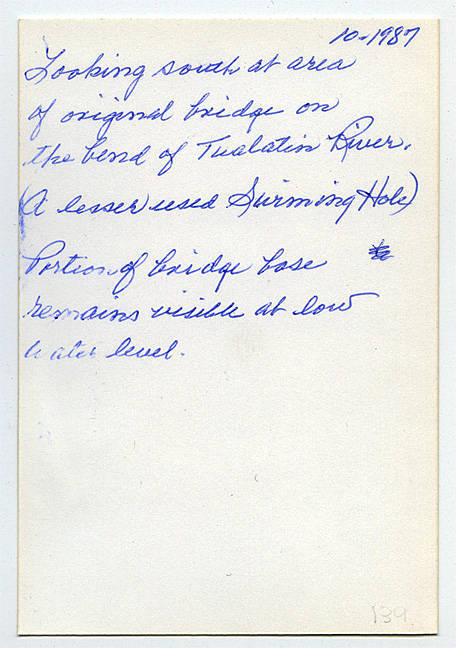 10-1987
Looking south at area
of original bridge on
the bend of Tualatin River.
(A lesser used Swimming Hole)
Portion of bridge base
remains visible at low
water level.
139